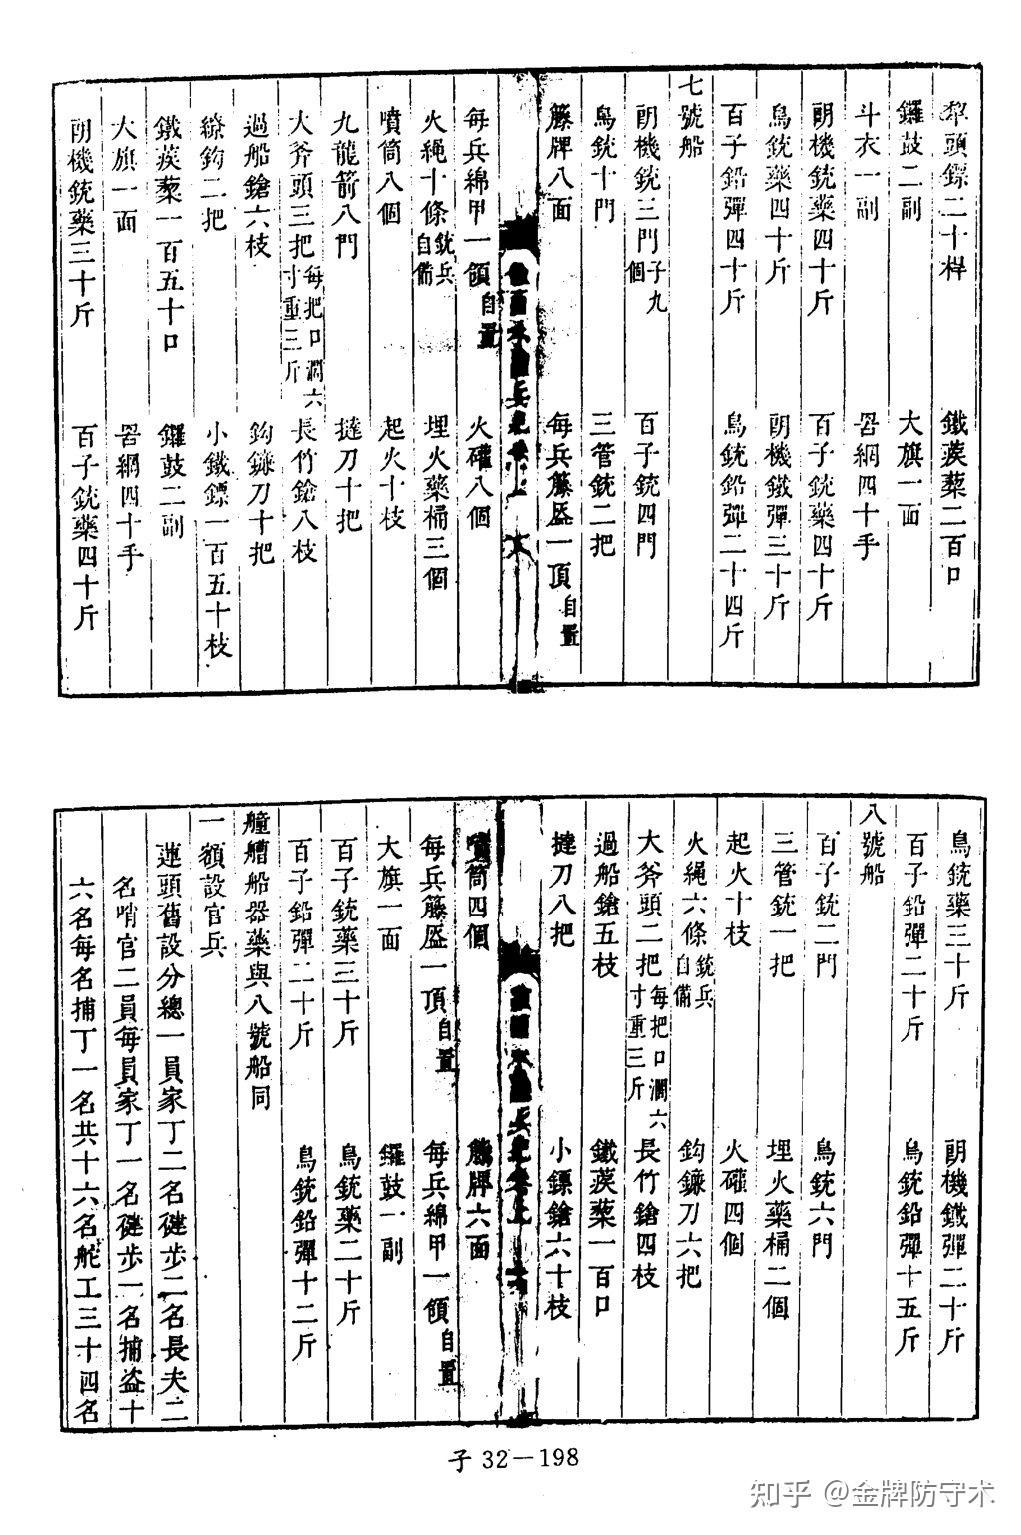 犂頭鏢二十桿　鐵蒺藜二百口
鑼鼓二副　大旗一面
斗衣一副　罟網四十手
朗機銃藥四十斤　百子銃藥四十斤
鳥銃藥四十斤　朗機鐵彈三十斤
百子鉛彈四十斤　鳥銃鉛彈二十四斤
七號船
朗機銃三門子九個　百子銃四門
鳥銃十門　三管銃二把
籐牌八面　每兵籐盔一頂自置
每兵綿甲一領自置　火礶八個
火繩十條銃兵自備　埋火藥桶三個
噴筒八個　起火十枝
九龍箭八門　撻刀十把
大斧頭三把每把口濶六寸重三斤　長竹鎗八枝
過船鎗六枝　鈎鐮刀十把
繚鈎二把　小鐵鏢一百五十枝
鐵蒺藜一百五十口　鑼鼓二副
大旗一面　罟網四十手
朗機銃藥三十斤　百子銃藥四十斤
鳥銃藥三十斤　朗機鐵彈二十斤
百子鉛彈二十斤　鳥銃鉛彈十五斤
八號船
百子銃二門　鳥銃六門
三管銃一把　埋火藥桶二個
起火十枝　火礶四個
火繩六條銃兵自備　鈎鐮刀六把
大斧頭二把每把口濶六寸重三斤　長竹鎗四枝
過船鎗五枝　鐵蒺藜一百口
撻刀八把　小鏢鎗六十枝
噴筒四個　籐牌六面
每兵籐盔一頂自置　每兵綿甲一領自置
大旗一面　鑼鼓一副
百子銃藥三十斤　鳥銃藥二十斤
百子鉛彈二十斤　鳥銃鉛彈十二斤
艟艚船器藥與八號船同
一額設官兵
蓮頭舊設分總一員家丁二名健步二名長夫二
名哨官二員每員家丁一名健步一名捕盜十
六名每名捕丁一名共十六名舵工三十四名
子32－198
知乎 @金牌防守术